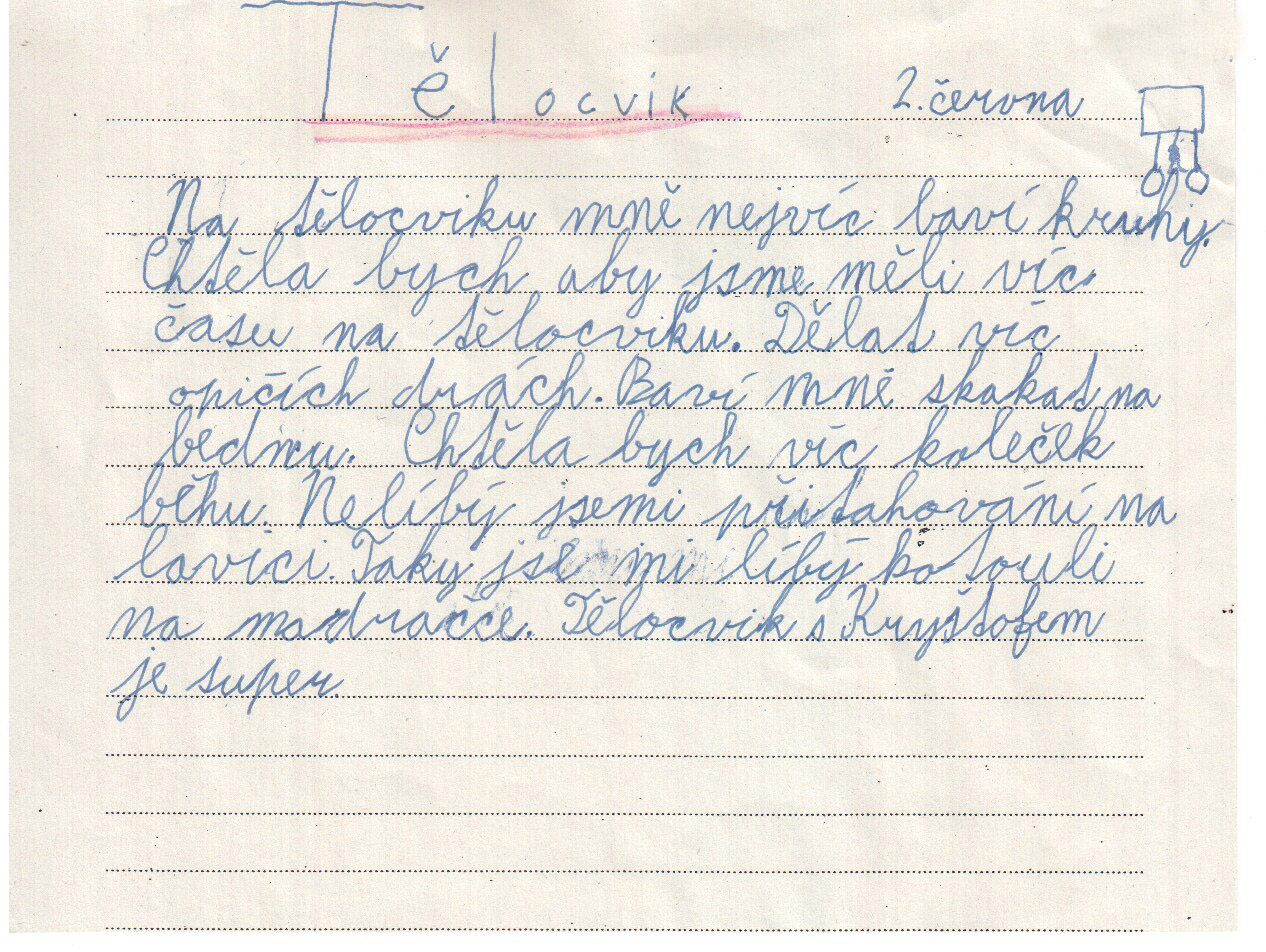 Tělocvik 2. června
Na tělocviku mně nejvíc baví kruhy.
Chtěla bych aby jsme měli víc
času na tělocviku. Dělat víc
opičích drách. Baví mně skakat na
bednu. Chtěla bych víc koleček
běhu. Nelíbý jsemi přitahování na
lavici. Taky jse mi líbý kotouli
na madračce. Tělocvik s Kryštofem
je super.